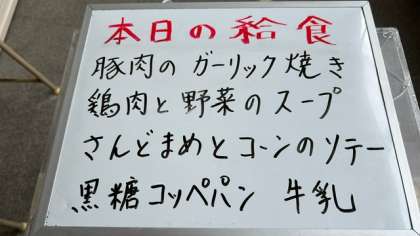 本日の給食
豚肉のガーリック焼き
鶏肉と野菜のスープ
さんどまめとコーンのソテー
黒糖コッペパン 牛乳